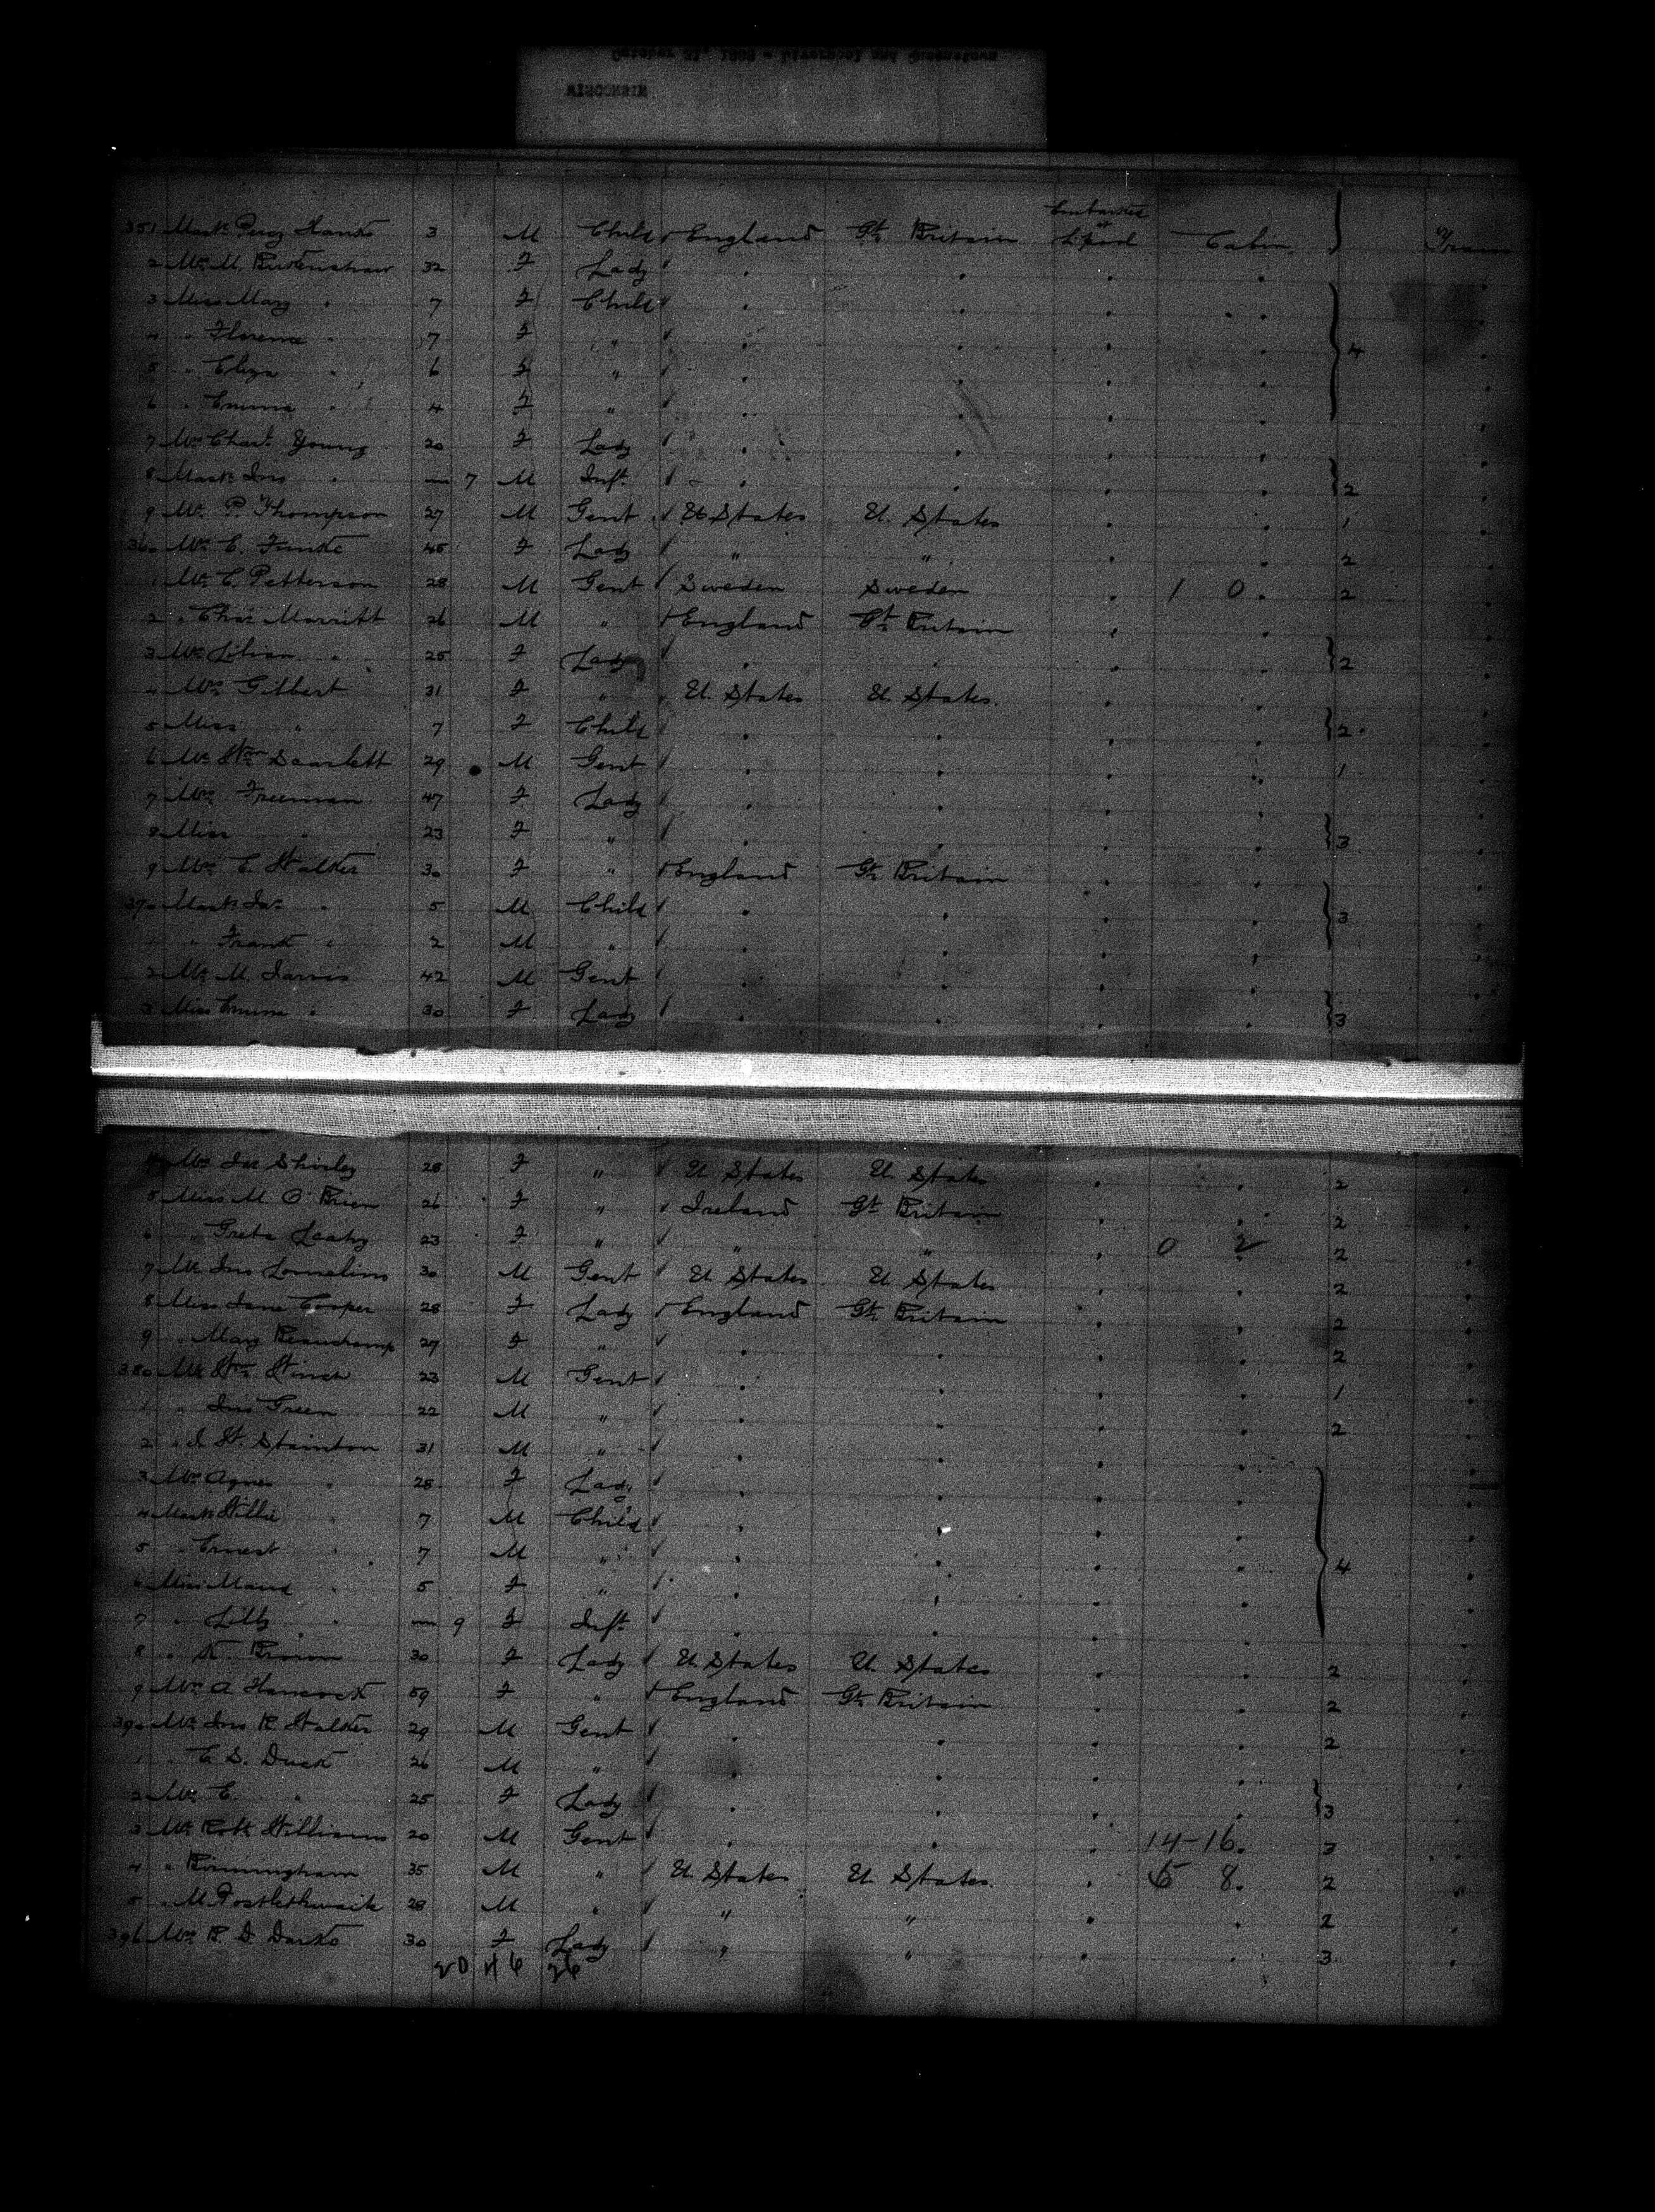 WISCONSIN
Embarked
351 Mast. Percy Hanks 3 M Child England Gt. Britain at L'pool Cabin Tran
2 Mrs. M. 32 F Lady
3 Miss Mary " 7 F Child
4 " Florence " 7 F "
5 " Eliza " 6 F " 4
6 " Emma " 4 F "
7 Mrs. Chart. Young 20 F Lady
8 Mast. Jno " — 7 M Inft. 2
9 Mr. P. Thompson 27 M Gent U. States U. States 1
360 Mrs. C. Funke 45 F Lady " " 2
1 Mr. C. Petterson 28 M Gent Sweden Sweden 1 0 2
2 " Chas Marriott 26 M " England Gt. Britain
3 Mrs. Lilian " 25 F Lady 2
4 Mrs. Gilbert 31 F " U. States U. States
5 Miss " 7 F Child 2
6 Mr. Wm. Scarlett 29 M Gent 1
7 Mrs. Freeman 47 F Lady
8 Miss " 23 F " 3
9 Mrs. E. Walker 30 F " England Gt. Britain
370 Mast. Jas. " 5 M Child 3
1 " Frank " 2 M "
2 Mr. M. Jarvis 42 M Gent
3 Miss Emma " 30 F Lady 3
4 Mrs. Jas Shirley 28 F " U. States U. States 2
5 Miss M. O'Brien 26 F " Ireland Gt. Britain 2
6 " Greta Leahy 23 F " " " 0 2 2
7 Mr. Jno 30 M Gent U. States U. States 2
8 Miss Jane Cooper 28 F Lady England Gt. Britain 2
9 " Mary Beauchamp 27 F " 2
380 Mr. Wm. Winch 23 M Gent 1
1 " Jno Green 22 M " 2
2 " J. W. Stainton 31 M "
3 Mrs. Agnes " 28 F Lady
4 Mast. Willie " 7 M Child
5 " Ernest " 7 M " 4
6 Miss Maud " 5 F "
7 " Lilly " — 9 F Inft.
8 " K. Brown 30 F Lady U. States U. States 2
9 Mrs. A Hancock 59 F " England Gt. Britain 2
390 Mr. Jno R. Walker 29 M Gent 2
1 " C. S. Duck 26 M "
2 Mrs. E. " 25 F Lady 3
3 Mr. Robt. Williams 20 M Gent 14-16. 3
4 " Birmingham 35 M " U. States U. States. 6 8. 2
5 " M. Postlethwaite 28 M " " " 2
396 Mrs. R. D. 30 F Lady " " 3
20 46 26